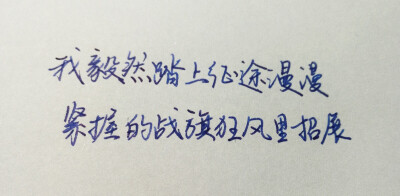 我毅然踏上征途漫漫
紧握的战旗狂风里招展